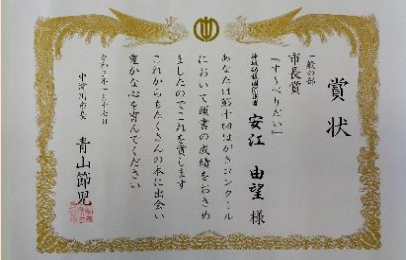 賞状
一般の部
市長賞
『す〜べりだい』
安江 由望 様
あなたは第十回はがきコンクール
において頭書の成績をおさめ
ましたのでこれを賞します
これからもたくさんの本に出会い
豊かな心を育んでください
中津川市長 青山節児